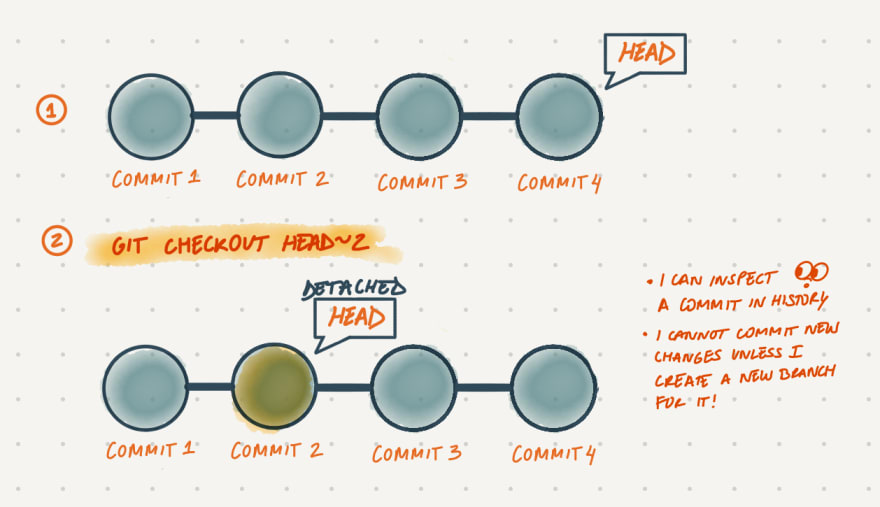 HEAD
1
COMMIT 1
COMMIT 2
COMMIT 3
COMMIT 4
2
GIT CHECKOUT HEAD~2
DETACHED
HEAD
COMMIT 1
COMMIT 2
COMMIT 3
COMMIT 4
• I CAN INSPECT
A COMMIT IN HISTORY
• I CANNOT COMMIT NEW
CHANGES UNLESS I
CREATE A NEW BRANCH
FOR IT!